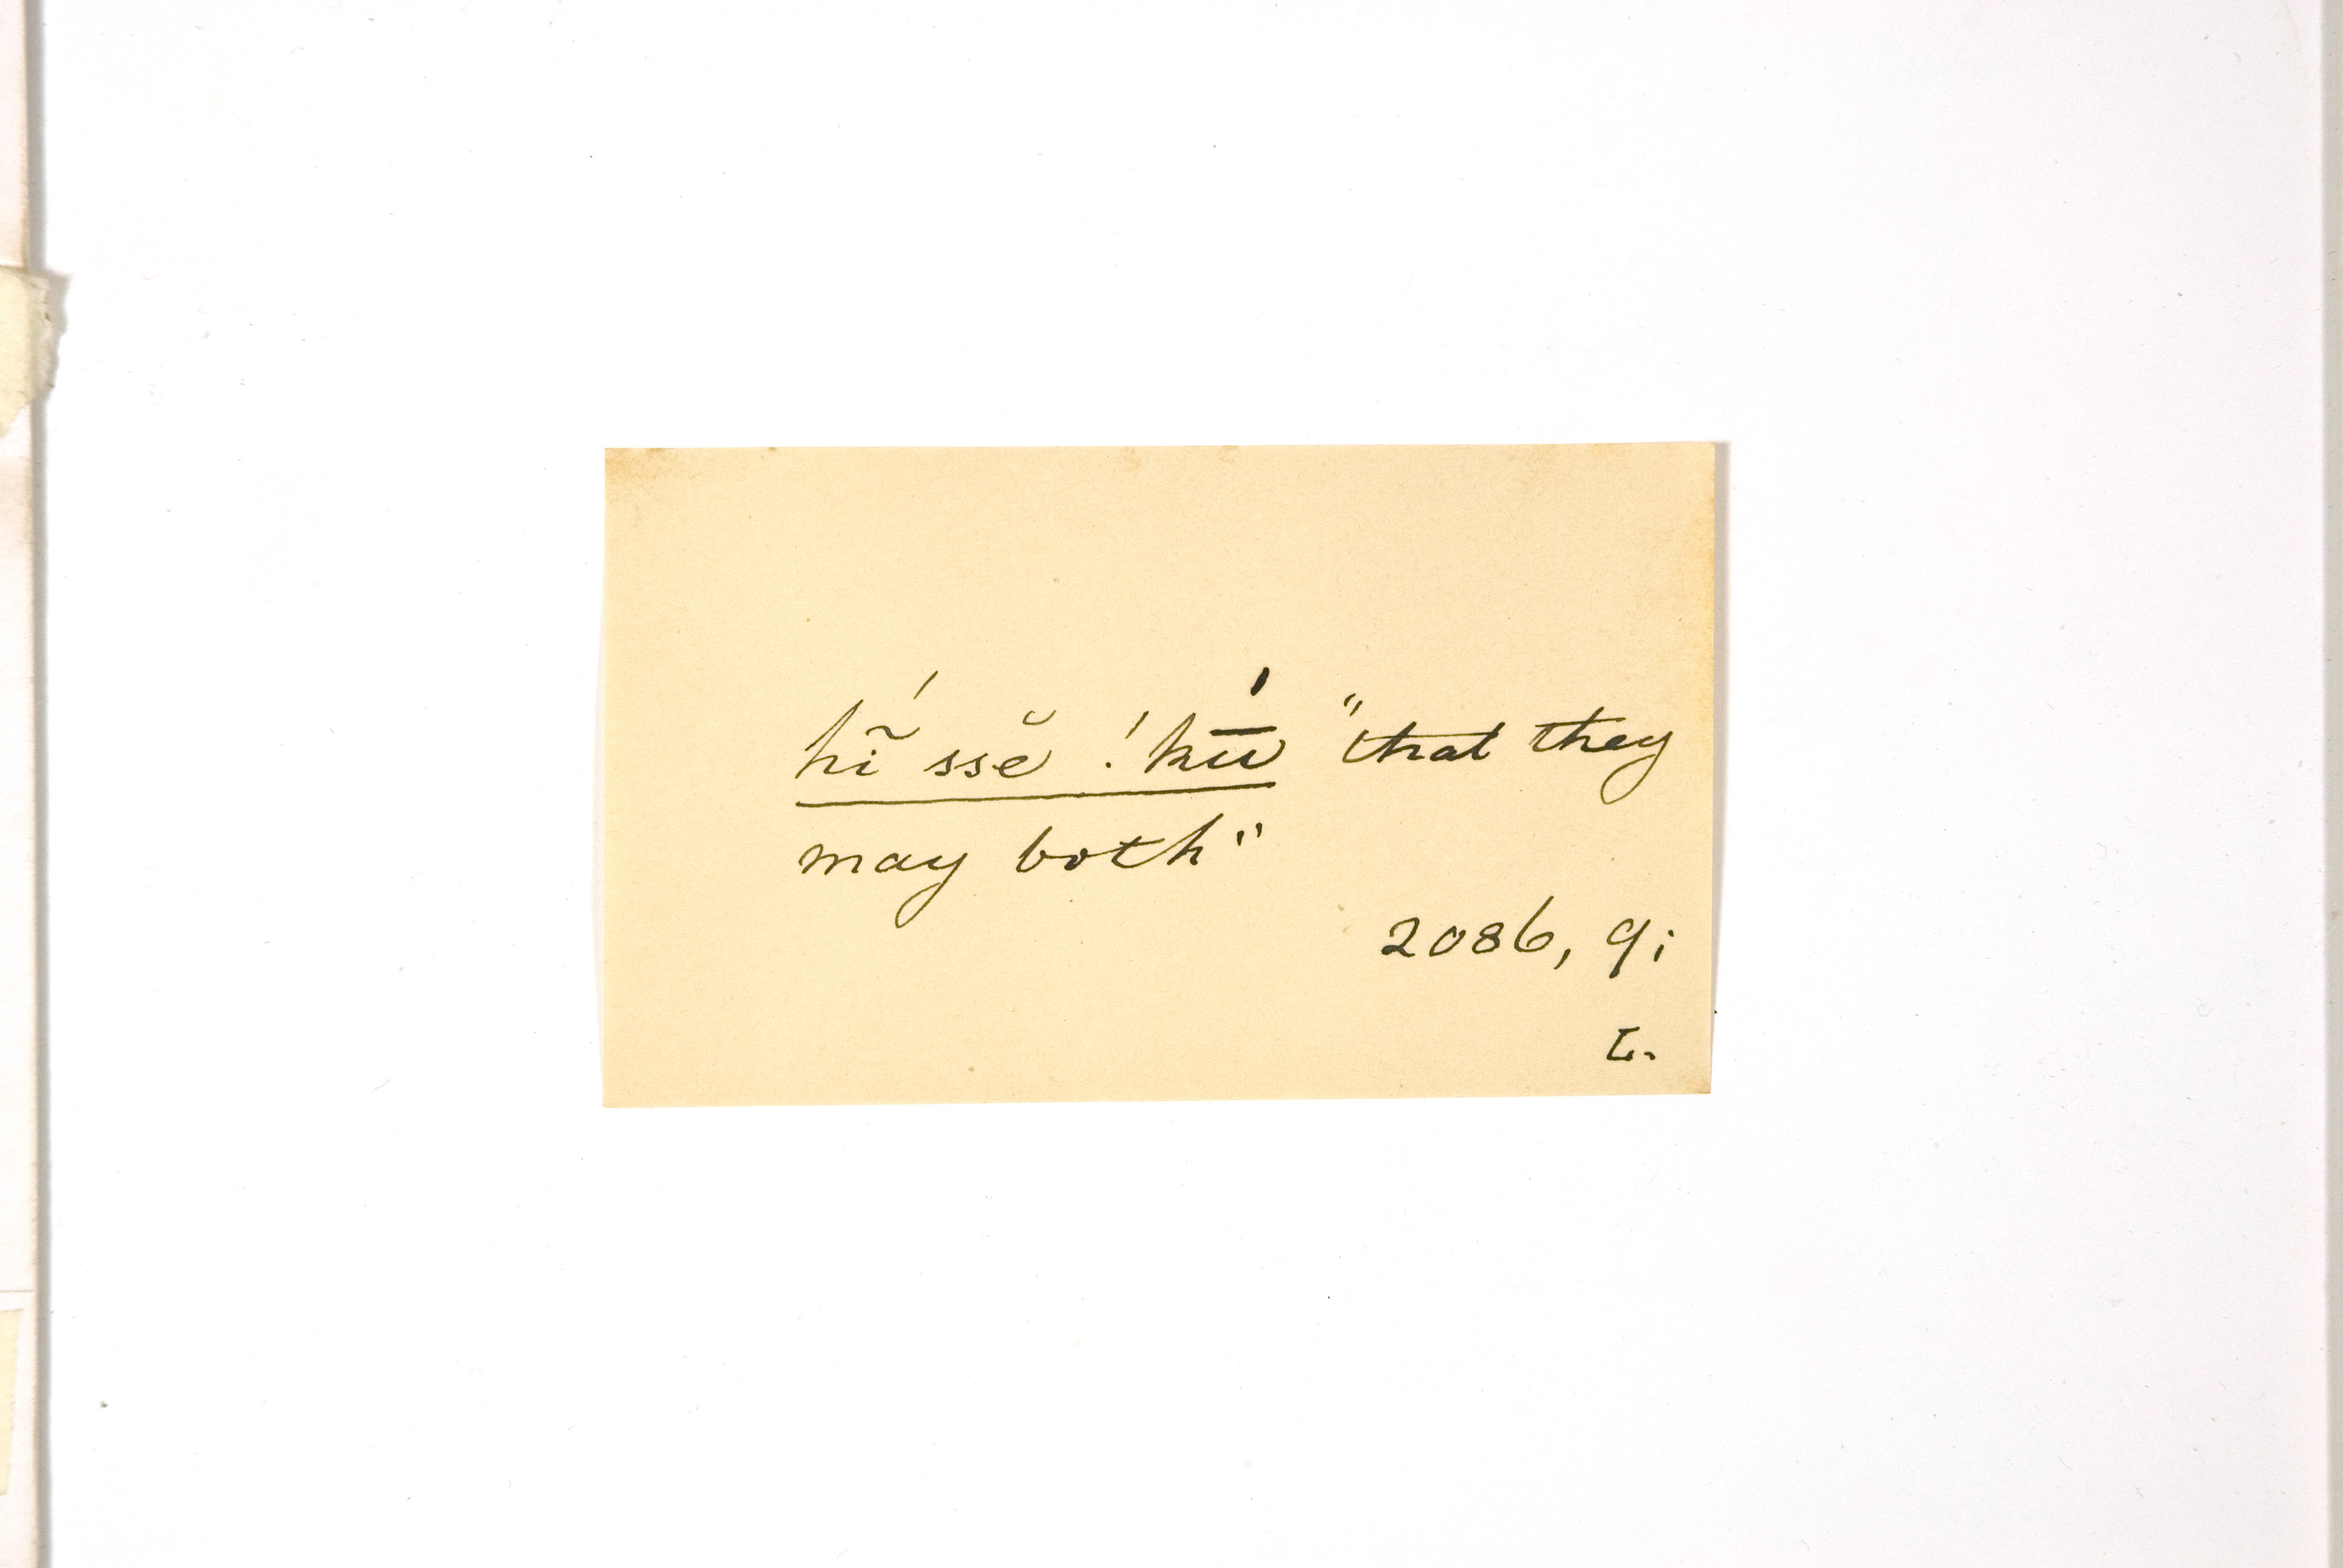 hĩ́ ssĕ !kū́ "that they
may both"
2086, 9;
L.